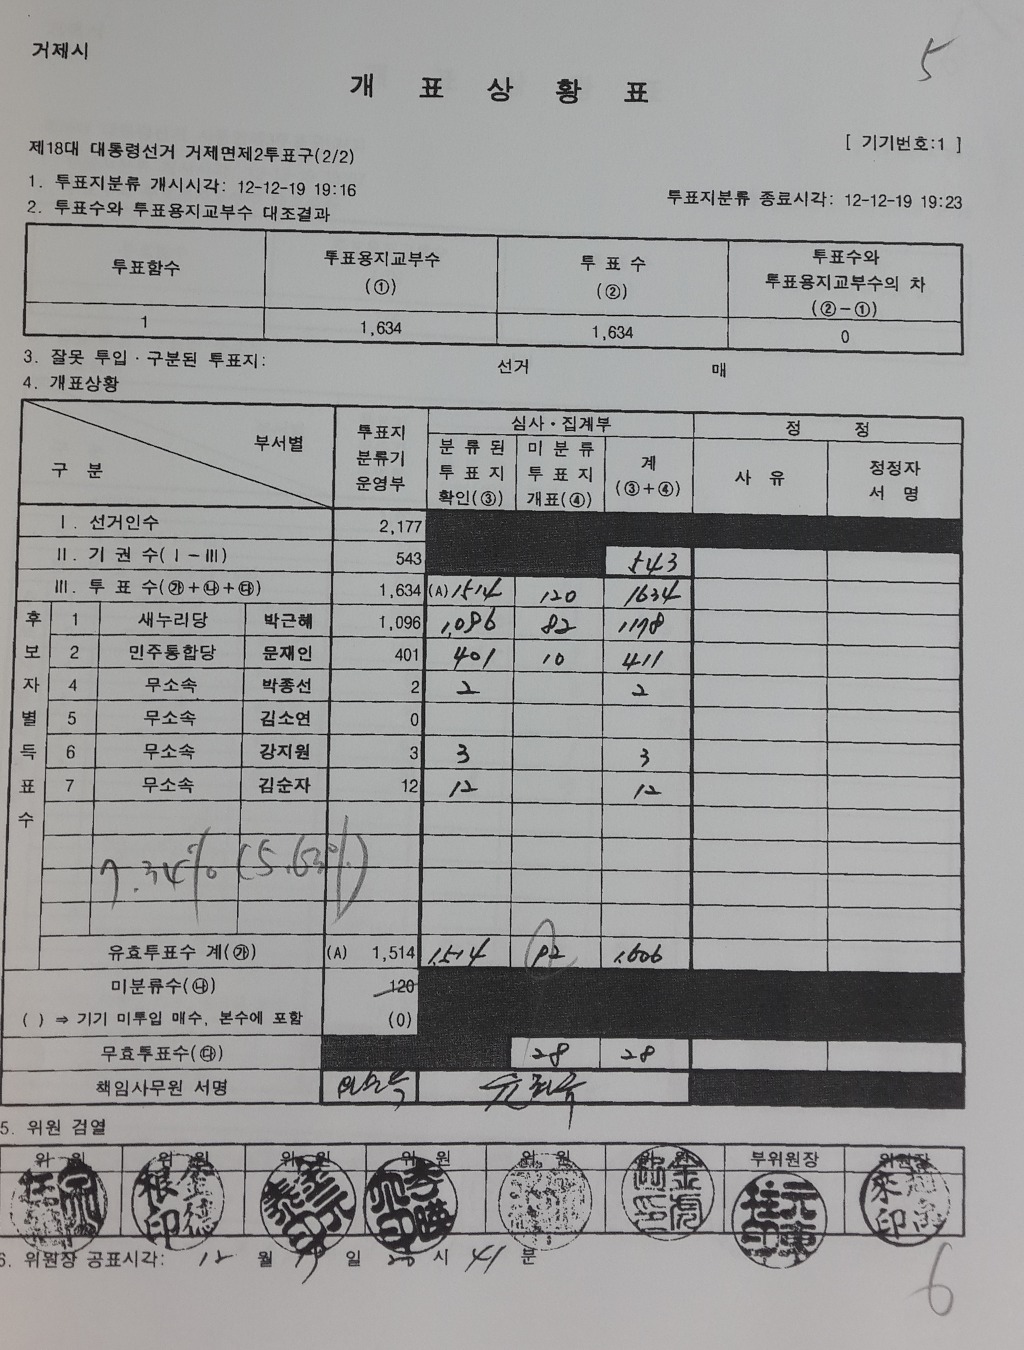 거제시
5
개 표 상 황 표
제18대 대통령선거 거제면제2투표구(2/2)
[ 기기번호:1 ]
1. 투표지분류 개시시각: 12-12-19 19:16
투표지분류 종료시각: 12-12-19 19:23
2. 투표수와 투표용지교부수 대조결과
투표함수 투표용지교부수 (①) 투 표 수 (②) 투표수와 투표용지교부수의 차 (②-①)
1 1,634 1,634 0
3. 잘못 투입·구분된 투표지: 선거 매
4. 개표상황
구 분 부서별 투표지 분류기 운영부 심사·집계부 정 정
분 류 된 투 표 지 확인(③) 미 분 류 투 표 지 개표(④) 계 (③+④) 사 유 정정자 서 명
Ⅰ. 선거인수 2,177
Ⅱ. 기 권 수(Ⅰ-Ⅲ) 543 543
Ⅲ. 투 표 수(㉮+㉯+㉰) 1,634 (A) 1514 120 1634
후보자별득표수
1 새누리당 박근혜 1,096 1,096 82 1,178
2 민주통합당 문재인 401 401 10 411
4 무소속 박종선 2 2 2
5 무소속 김소연 0
6 무소속 강지원 3 3 3
7 무소속 김순자 12 12 12
7.34% (5.63%)
유효투표수 계(㉮) (A) 1,514 1,514 92 1,606
미분류수(㉯) 120
( ) ⇒ 기기 미투입 매수, 본수에 포함 (0)
무효투표수(㉰) 28 28
책임사무원 서명
5. 위원 검열
위 원 위 원 위 원 위 원 위 원 위 원 부위원장 위원장
6. 위원장 공표시각: 12 월 19 일 20 시 41 분
6